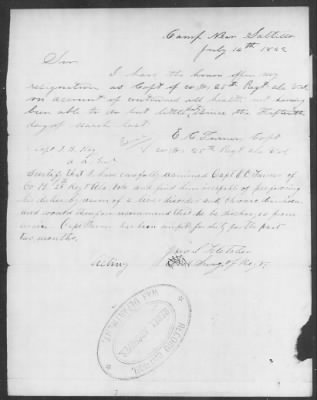 Camp Near Saltillo
July 14th 1862
Sir
I have the honor offer my
resignation as Capt of Co H. 25th Regt Ala Vol
on account of continued ill health not having
been able to do but little duty since the fifteenth
day of March last
E. C. Turner Capt
Co H. 25th Regt Ala Vol
Capt J. D. Key
A. A. Genl
I certify that I have carefully examined Capt E C Turner of
Co H 25 Regt Ala Vols and find him incapable of performing
his duties by reason of
and would therefore recommend that he be discharged from
service Capt Turner has been unfit for duty for the past
two months
Acting Surg of
RECORD DIVISION
REBEL ARCHIVES
WAR DEPARTMENT